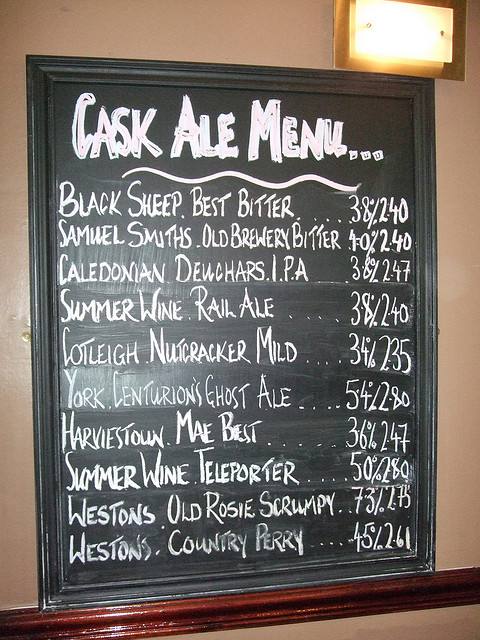 CASK ALE MENU...
BLACK SHEEP. BEST BITTER ..... 3.8% 2.40
SAMUEL SMITHS. OLD BREWERY BITTER 4.0% 2.40
CALEDONIAN DEUCHARS. I.P.A 3.8% 2.47
SUMMER WINE. RAIL ALE ..... 3.8% 2.40
COTLEIGH NUTCRACKER MILD .... 3.4% 2.35
YORK. CENTURION'S GHOST ALE .... 5.4% 2.80
HARVIESTOUN. MAE BEST ...... 3.6% 2.47
SUMMER WINE. TELEPORTER ..... 5.0% 2.80
WESTONS. OLD ROSIE SCRUMPY .. 7.3% 2.75
WESTONS. COUNTRY PERRY .... 4.5% 2.61